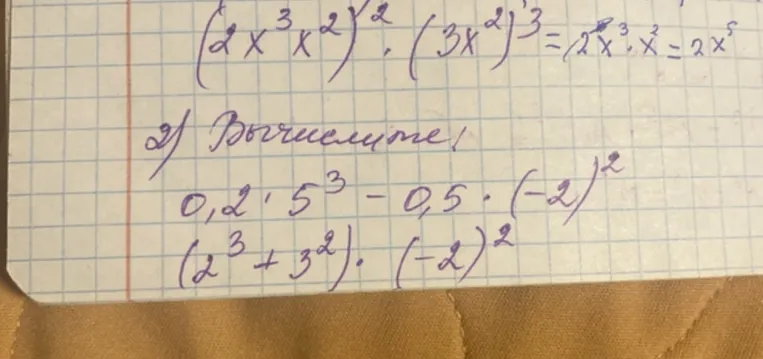 (2x³x²)² · (3x²)³ = 2x³·x² = 2x⁵
2) Вычислите:
0,2 · 5³ - 0,5 · (-2)²
(2³ + 3²) · (-2)²